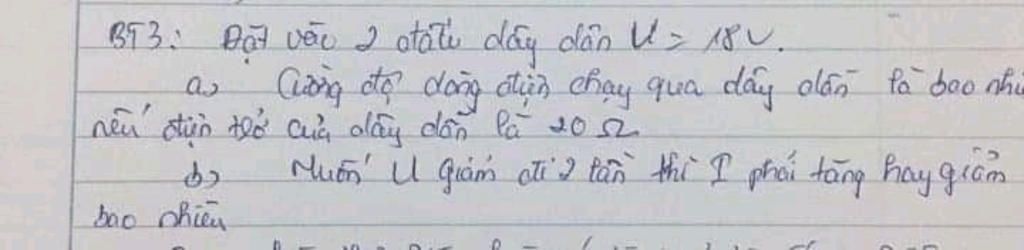 BT3: Đặt vào 2 đầu dây dẫn U = 18V.
a, Cường độ dòng điện chạy qua dây dẫn là bao nhi
nếu điện trở của dây dẫn là 20 Ω
b, Muốn U giảm đi 2 lần thì I phải tăng hay giảm
bao nhiêu